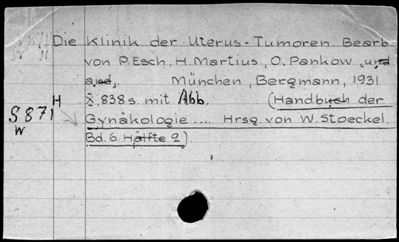 Die Klinik der Uterus-Tumoren. Bearb
von P. Esch, H. Martius, O. Pankow, und
and, München, Bergmann, 1931
X, 838 s. mit Abb. (Handbuch der
Gynäkologie .... Hrsg. von W. Stoeckel.
Bd. 6 Hälfte 2)
H
S 871
W